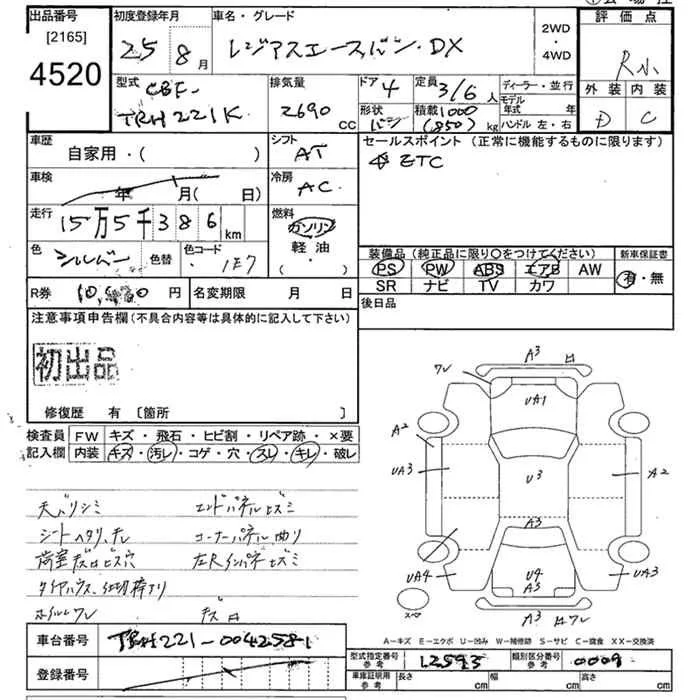 出品番号
[2165]
4520
初度登録年月
25 8月
車名・グレード
レジアスエースバン・DX
2WD
・
4WD
評価点
R小
外装 内装
D C
型式
CBF-
TRH221K
排気量
2690 CC
ドア 4
形状 バン
定員 3/6人
積載 1000
(850) kg
ディーラー・並行
モデル年式 年
ハンドル 左・右
車歴 自家用・( )
シフト AT
車検 年 月(日)
冷房 AC
走行 15万5千386km
燃料 ガソリン
軽油
・( )
色 シルバー 色替
色コード 1E7
セールスポイント(正常に機能するものに限ります)
ETC
装備品(純正品に限り○をつけてください)
PS PW ABS エアB AW
SR ナビ TV カワ
新車保証書
有・無
R券 円
名変期限 月 日
後日品
注意事項申告欄(不具合内容等は具体的に記入して下さい)
初出品
修復歴 有 〔箇所 〕
検査員記入欄
FW キズ・飛石・ヒビ割・リペア跡・×要
内装 キズ・汚レ・コゲ・穴・スレ・キレ・破レ
天バリシミ
シートヘタリ、キレ
荷室キズロビス穴
タイヤハウス、仕切棒サリ
ホイルワレ
エンドパネルヒズミ
コーナーパネル曲り
左Rインパネヒズミ
キズロ
A3
ワレ
UA1
A2
UA3
U3
A2
A3
UA4
U4
A3
UA3
A3
ロワレ
スペア
A-キズ E-エクボ U-凹み W-補修跡 S-サビ C-腐食 XX-交換済
車台番号 TRH221-0042581
登録番号
型式指定番号
参考
12593
類別区分番号
参考
0009
車庫証明用
参考
長さ cm
幅 cm
高さ cm